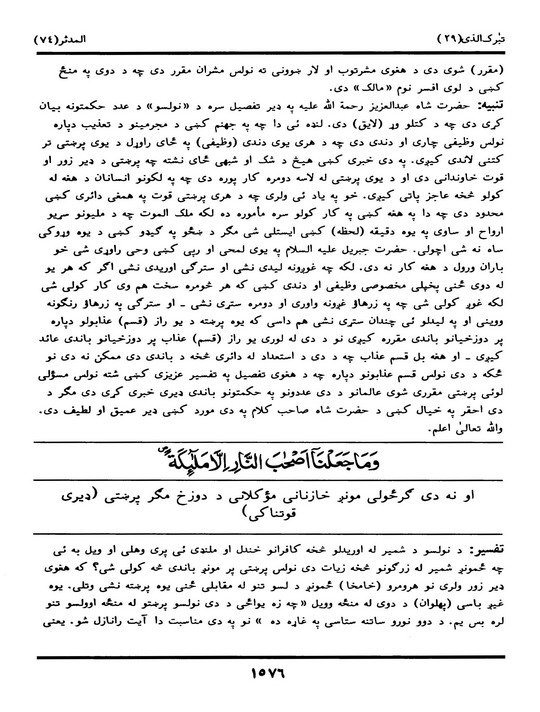 تبٰرك الذي (٢٩) المدثر (٧٤)
(مقرر) شوی دی د هغوی مشرتوب او لار ښوونی ته نولس مشران مقرر دی چه د دوی په منځ
کښی د لوی افسر نوم «مالک» دی.
تنبیه: حضرت شاه عبدالعزیز رحمة الله علیه په ډیر تفصیل سره د «نولسو» د عدد حکمتونه بیان
کړی دی چه د کتلو وړ (لایق) دی. لنډه ئی دا چه په جهنم کښی د مجرمینو د تعذیب دپاره
نولس وظیفی چاری او دندی دی چه د هری یوی دندی (وظیفی) په ځای راوړل د یوی پرښتی تر
کتنی لاندی کیږی. په دی خبری کښی هیڅ د شک او شبهی ځای نشته چه پرښتی د ډیر زور او
قوت خاوندانی دی او د یوی پرښتی له لاسه دومره کار پوره دی چه په لکونو انسانان د هغه له
کولو څخه عاجز پاتی کیږی. خو په یاد ئی ولری چه د هری پرښتی قوت په همغی دائری کښی
محدود دی چه دا په هغه کښی په کار کولو سره مأموره ده لکه ملک الموت چه د ملیونو سړیو
ارواح او ساوی په یوه دقیقه (لحظه) کښی ایستلی شی مگر د ښځو په گیډو کښی د یوه وړوکی
ساه نه شی اچولی. حضرت جبریل علیه السلام په یوی لمحی او رپی کښی وحی راوړی شی خو
باران ورول د هغه کار نه دی. لکه چه غوږونه لیدی نشی او سترگی اوریدی نشی اگر که هر یو
له دوی څنی پخپلی مخصوصی وظیفی او دندی کښی که هر څومره سخت هم وی کار کولی شی
لکه غوږ کولی شی چه په زرهاؤ غږونه واوری او دومره ستړی نشی ـ او سترگی په زرهاؤ رنگونه
ووینی او په لیدلو ئی چندان ستړی نشی هم داسی که یوه پرښته د یو راز (قسم) عذابولو دپاره
پر دوزخیانو باندی مقرره کیږی نو د دی له لوری یو راز (قسم) عذاب پر دوزخیانو باندی عائد
کیږی ـ او هغه بل قسم عذاب چه د دی د استعداد له دائری څخه د باندی دی ممکن نه دی نو
ځکه د دی نولس قسم عذابونو دپاره چه د هغوی تفصیل په تفسیر عزیزی کښی شته نولس مسؤلی
لوئی پرښتی مقرری شوی عالمانو د دی عددونو په حکمتونو باندی ډیری خبری کړی دی مگر د
دی احقر په خیال کښی د حضرت شاه صاحب کلام په دی مورد کښی ډیر عمیق او لطیف دی.
والله تعالیٰ اعلم.
وَمَا جَعَلْنَآ اَصْحٰبَ النَّارِ اِلَّا مَلٰٓئِكَةً ص
او نه دی گرځولی مونږ خازنانی مؤکلانی د دوزخ مگر پرښتی (ډیری
قوتناکی)
تفسیر: د نولسو د شمیر له اوریدلو څخه کافرانو خندل او ملنډی ئی پری وهلی او ویل به ئی
چه ځمونږ شمیر له زرگونو څخه زیات دی نولس پرښتی پر مونږ باندی څه کولی شی؟ که هغوی
ډیر زور ولری نو هرومرو (خامخا) ځمونږ د لسو تنو له مقابلی څنی یوه پرښته نشی وتلی. یوه
غیږ باسی (پهلوان) د دوی له منځه وویل «چه زه یواځی د دی نولسو پرښتو له منځه اوولسو تنو
لره بس یم. د دوو نورو ساتنه ستاسی په غاړه ده » نو په دی مناسبت دا آیت رانازل شو. یعنی
١٥٧٦